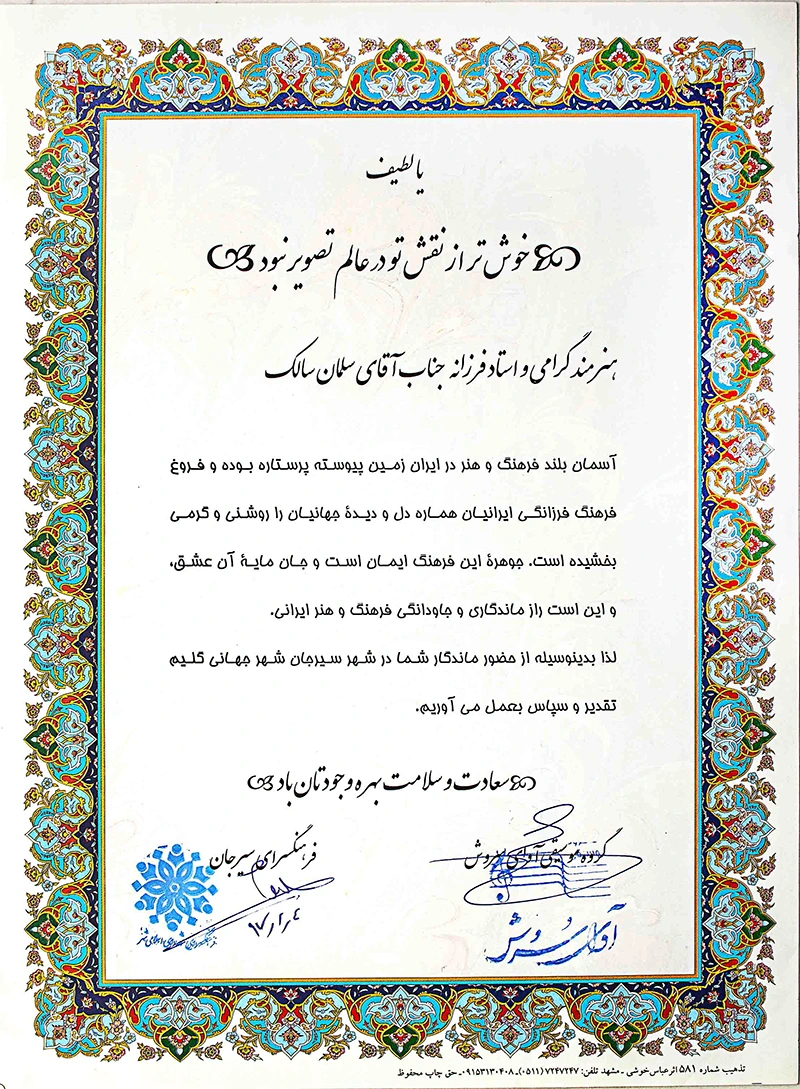 یا لطیف
خوش تر از نقش تو در عالم تصویر نبود
هنرمند گرامی و استاد فرزانه جناب آقای سلمان سالک
آسمان بلند فرهنگ و هنر در ایران زمین پیوسته پرستاره بوده و فروغ
فرهنگ فرزانگی ایرانیان هماره دل و دیدۀ جهانیان را روشنی و گرمی
بخشیده است. جوهرۀ این فرهنگ ایمان است و جان مایۀ آن عشق،
و این است راز ماندگاری و جاودانگی فرهنگ و هنر ایرانی.
لذا بدینوسیله از حضور ماندگار شما در شهر سیرجان شهر جهانی گلیم
تقدیر و سپاس بعمل می آوریم.
سعادت و سلامت بهره وجودتان باد
گروه موسیقی آوای سروش
فرهنگسرای سیرجان
آوای سروش
تذهیب شماره ۵۸۱ اثر عباس خوشی ـ مشهد تلفن: ۷۲۴۷۲۴۷ (۰۵۱۱) ـ ۰۹۱۵۳۱۳۰۴۰۸ ـ حق چاپ محفوظ